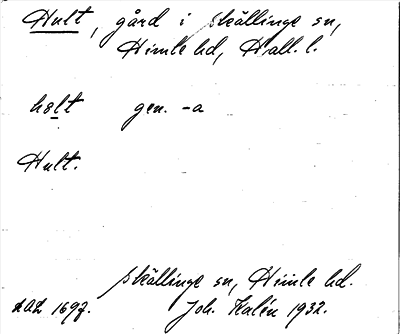 Hult, gård i Skällinge sn,
Himle hd, Hall. l.
hɷlt gen. -a
Hult.
Skällinge sn, Himle hd.
LAL 1697. Joh. Kalén 1932.